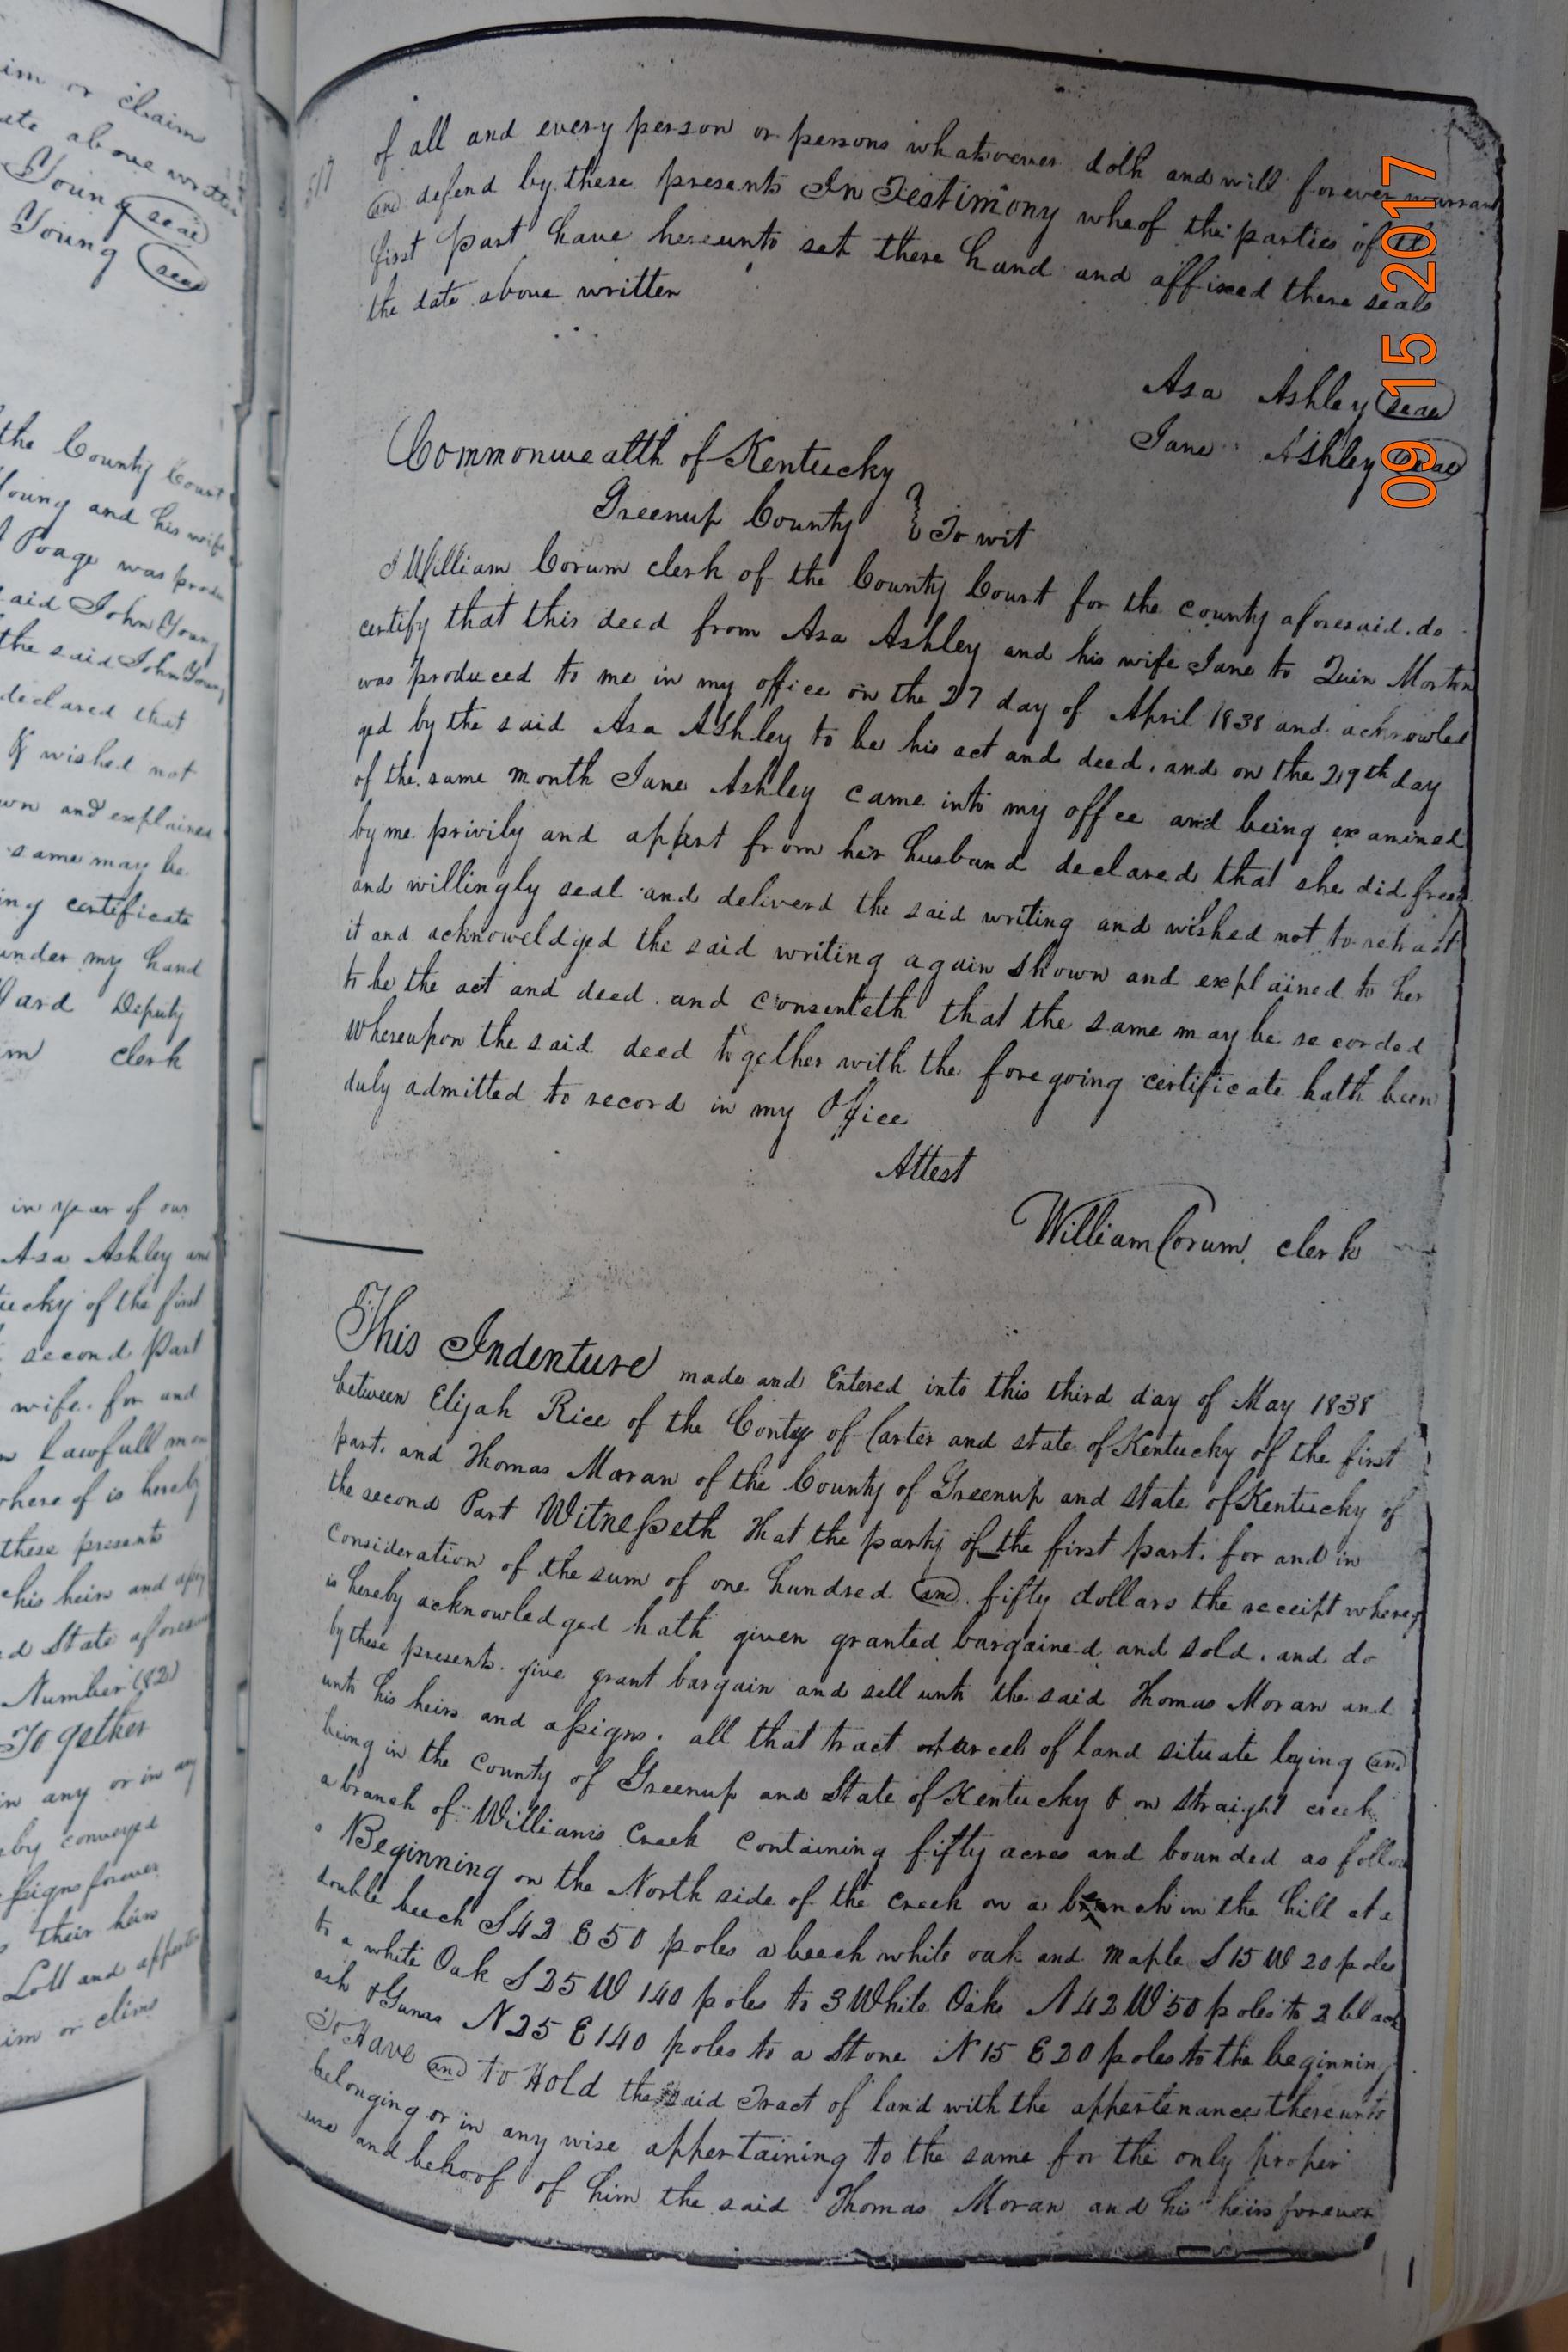 im or claim
ate above written
Young seal
Young seal
the County Court
Young and his wife
Poage was produ
said John Young
the said John Young
declared that
wished not
own and explained
same may be
ing certificate
under my hand
Ward Deputy
clerk
in year of our
Asa Ashley and
tucky of the first
second Part
wife. for and
Lawfull mon
where of is hereby
these presents
his heirs and
d State aforesa
Number (82)
Together
in any or in any
eby conveyed
ssigns forever
their heirs
Lott and appert
im or clims
517
of all and every person or persons whatsoever doth and will forever warrant
and defend by these presents In Testimony wheof the parties of the
first part have hereunto set there hand and affixed there seals
the date above written
Asa Ashley seal
Jane Ashley seal
Commonwealth of Kentucky
Greenup County } To wit
I William Corum clerk of the County Court for the county aforesaid. do
certify that this deed from Asa Ashley and his wife Jane to Quin Morton
was produced to me in my office on the 27 day of April 1838 and acknowled
ged by the said Asa Ashley to be his act and deed. and on the 29th day
of the same month Jane Ashley came into my offce and being examined
by me privily and appart from her husband declared that she did freely
and willingly seal and deliverd the said writing and wished not to retract
it and acknoweldged the said writing again shown and explained to her
to be the act and deed. and consenteth that the same may be recorded
Whereupon the said deed together with the foregoing certificate hath been
duly admitted to record in my Office
Attest
William Corum clerk
This Indenture made and Entered into this third day of May 1838
between Elijah Rice of the Conty of Carter and state of Kentucky of the first
part. and Thomas Moran of the County of Greenup and state of Kentucky of
the second Part Witnesseth that the party of the first part. for and in
consideration of the sum of one hundred and fifty dollars the receipt whereof
is hereby acknowledged hath given granted bargained and sold. and do
by these presents. give grant bargain and sell unto the said Thomas Moran and
unto his heirs and assigns. all that tract or parcel of land situate lying and
being in the county of Greenup and State of Kentucky & on straight creek
a branch of Williams Creek containing fifty acres and bounded as follow
Beginning on the North side of the creek on a bench in the hill at a
double beech S 42 E 50 poles a beech white oak and maple S 15 W 20 poles
to a white Oak S 25 W 140 poles to 3 White Oaks N 42 W 50 poles to 2 black
ash & Gums N 25 E 140 poles to a Stone N 15 E 20 poles to the beginning
To Have and to Hold the said Tract of land with the appertenances thereunto
belonging or in any wise appertaining to the same for the only proper
use and behoof of him the said Thomas Moran and his heirs forever
09 15 2017